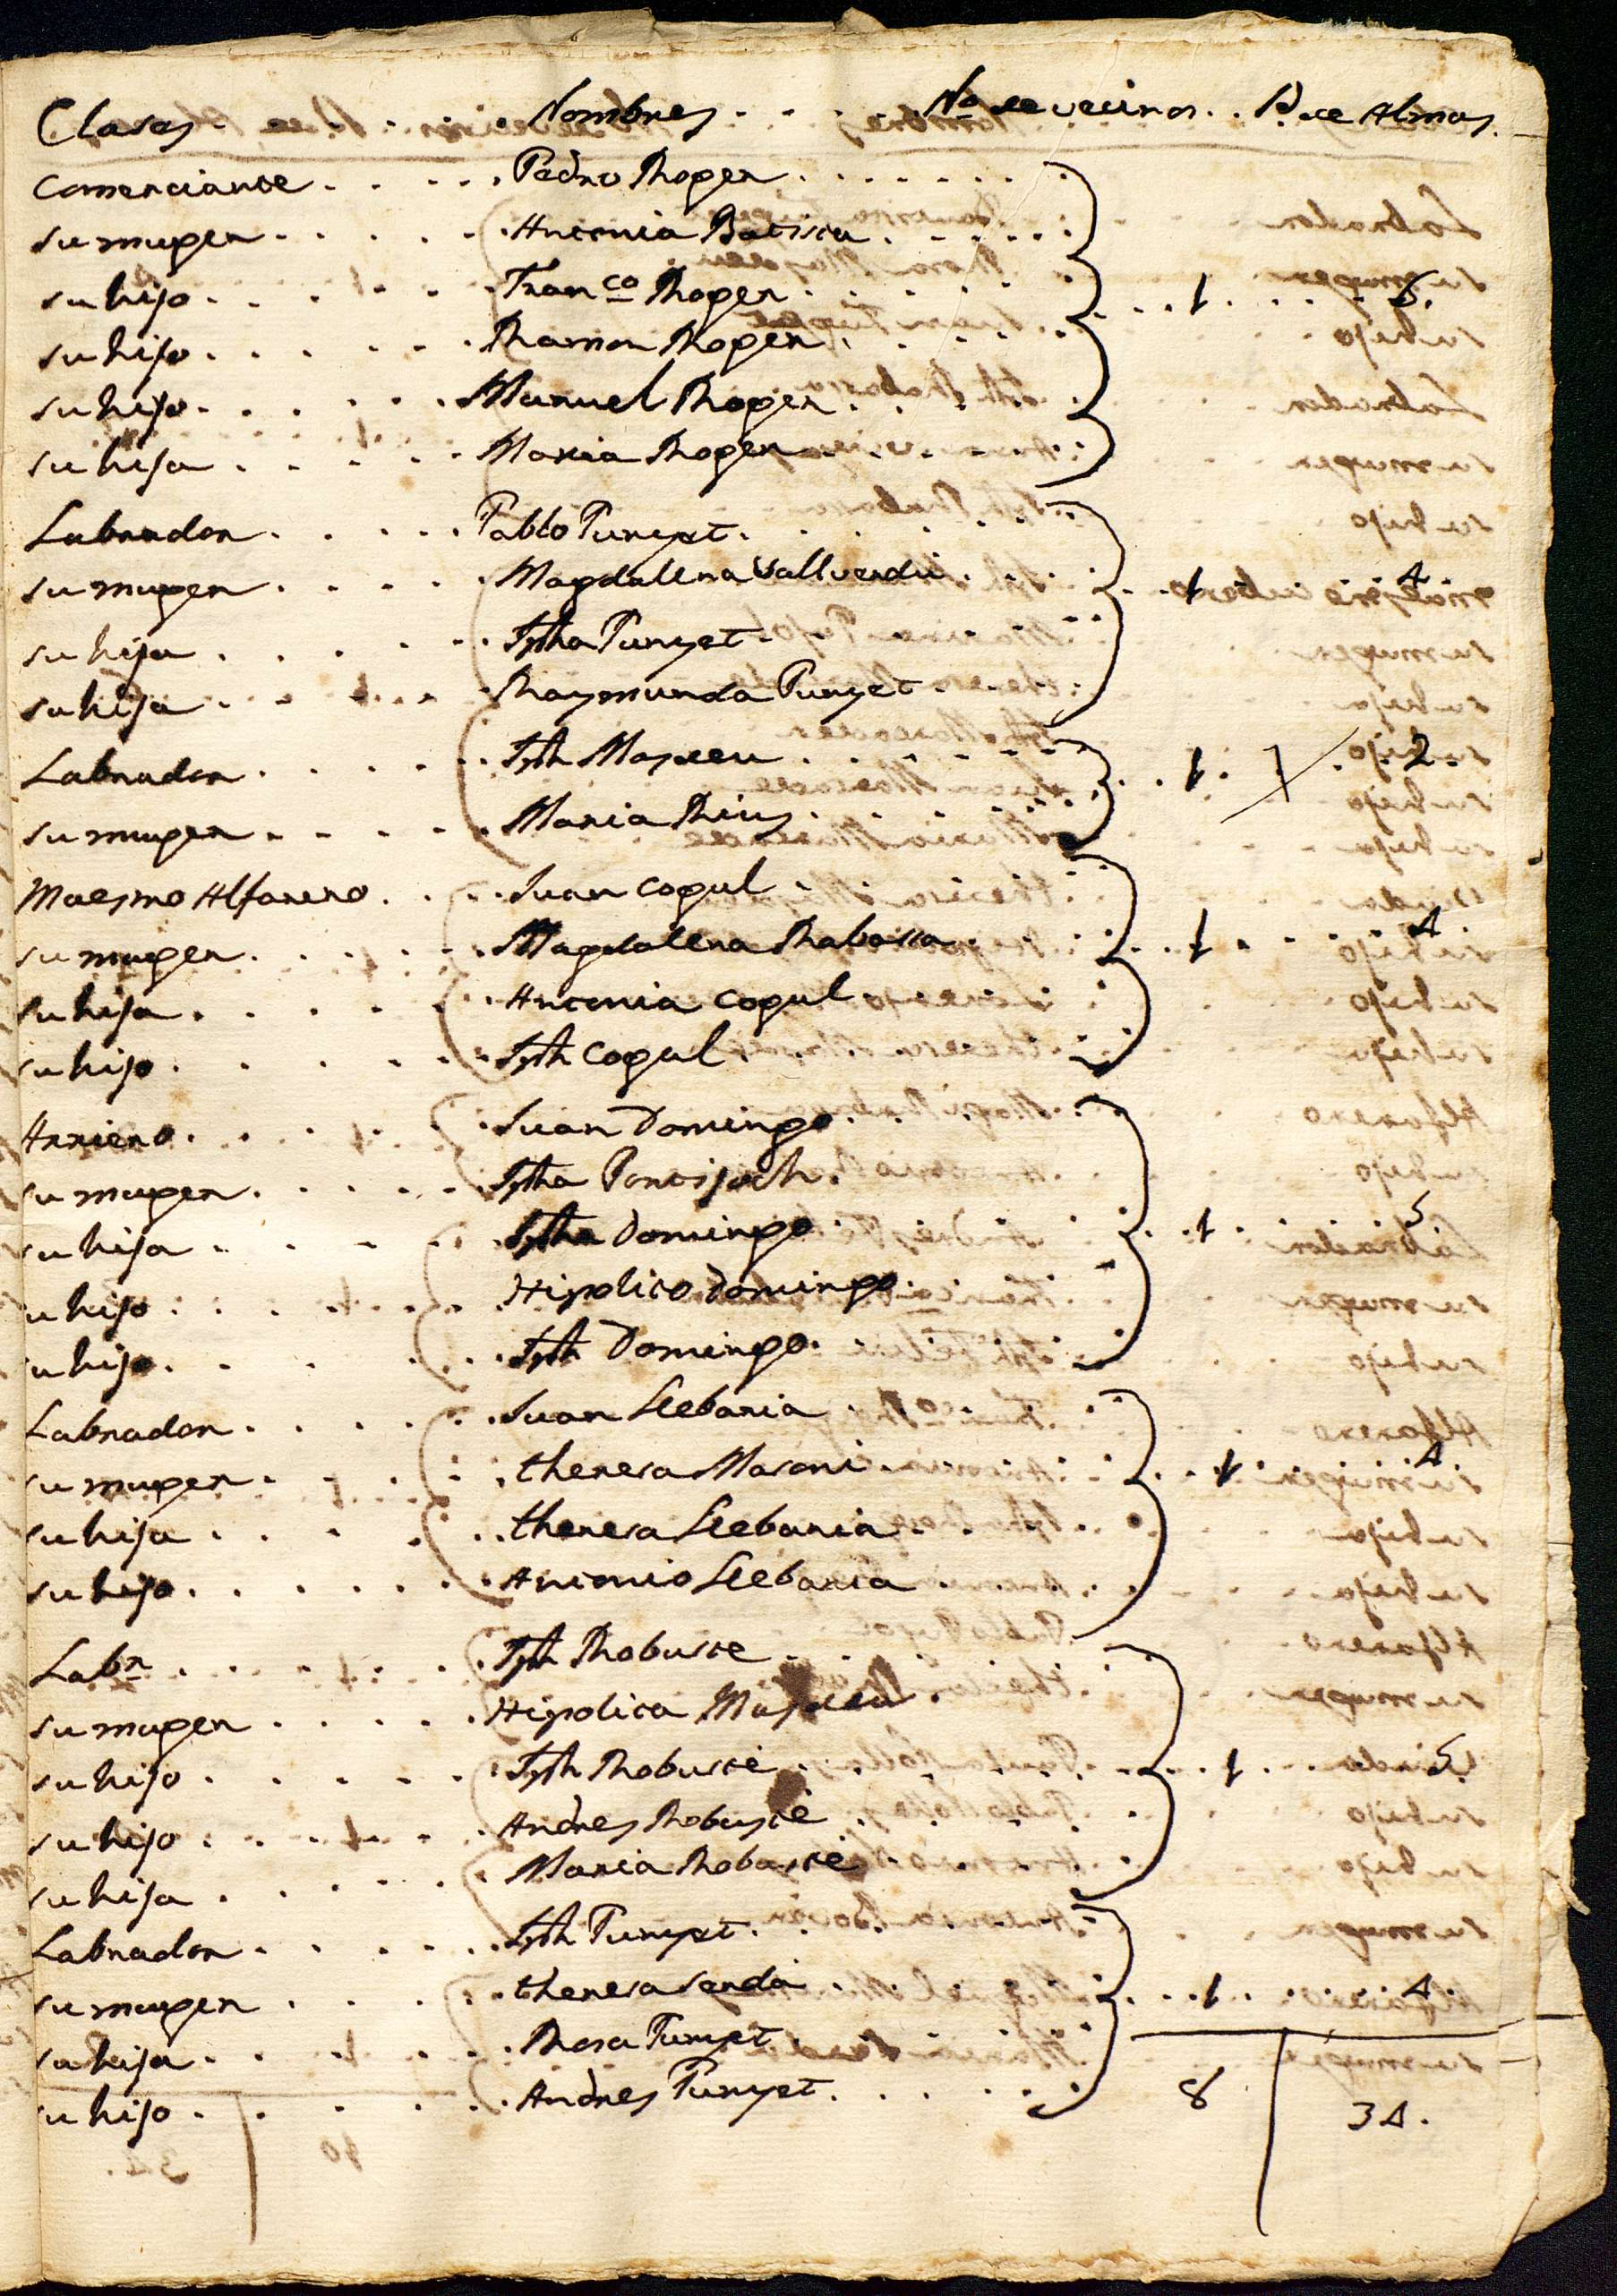 Clases Nombres No de vecinos Id de Almas
Comerciante Pedro Roger
su muger Antonia Batista
su hijo Franco Roger 1 6
su hijo Ramon Roger
su hijo Manuel Roger
su hija Maria Roger
Labrador Pablo Punyet
su muger Magdalena Vallverdu 1 4
su hija Jpha Punyet
su hija Raymunda Punyet
Labrador Jph Masdeu 1 2
su muger Maria Rius
Maestro Alfarero Juan Cogul
su muger Magdalena Rabassa 1 4
su hija Antonia Cogul
su hijo Jph Cogul
Arriero Juan Domingo
su muger Jpha Pontijoch
su hija Jpha Domingo 1 5
su hijo Hipolito Domingo
su hijo Jph Domingo
Labrador Juan Llebaria
su muger theresa Masani 1 4
su hija theresa Llebaria
su hijo Antonio Llebaria
Labr Jph Robuste
su muger Hipolita Masdeu
su hijo Jph Robusté 1 5
su hijo Andres Robusté
su hija Maria Robusté
Labrador Jph Punyet
su muger theresa Serdá 1 4
su hija Rosa Punyet
su hijo Andres Punyet 8 34.